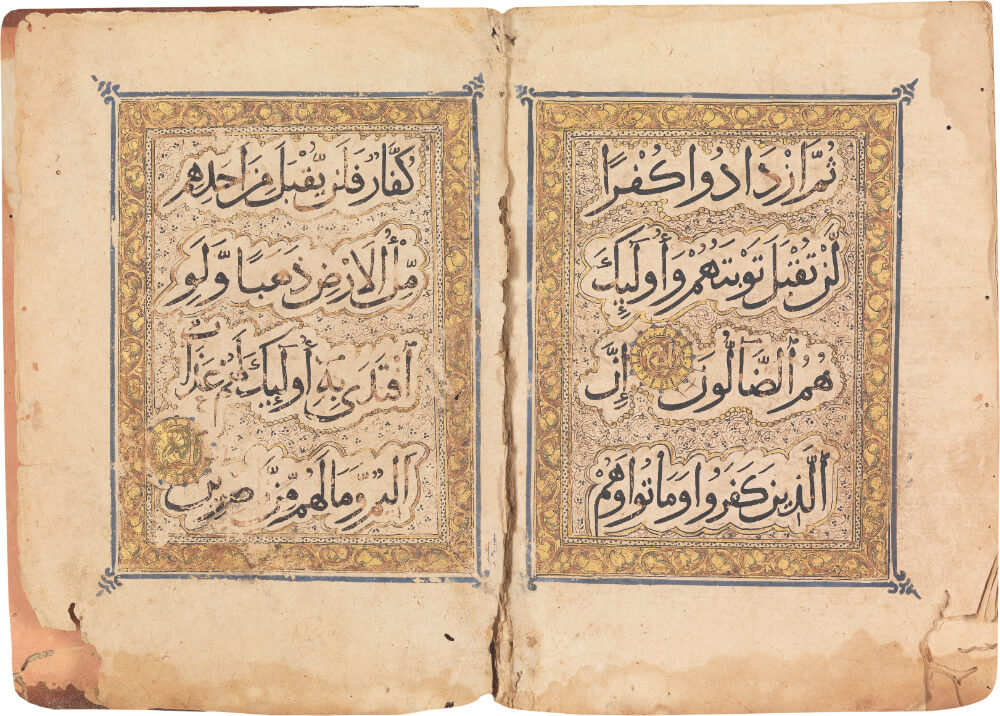 ثُمَّ ٱزْدَادُوا كُفْرًا
لَّن تُقْبَلَ تَوْبَتُهُمْ وَأُولَٰٓئِكَ
هُمُ ٱلضَّآلُّونَ إِنَّ
ٱلَّذِينَ كَفَرُوا وَمَاتُوا وَهُمْ
كُفَّارٌ فَلَن يُّقْبَلَ مِنْ أَحَدِهِم
مِّلْءُ ٱلْأَرْضِ ذَهَبًا وَّلَوِ
ٱفْتَدَىٰ بِهِۦ أُولَٰٓئِكَ لَهُمْ عَذَابٌ
أَلِيمٌ وَّمَا لَهُم مِّن نَّٰصِرِينَ